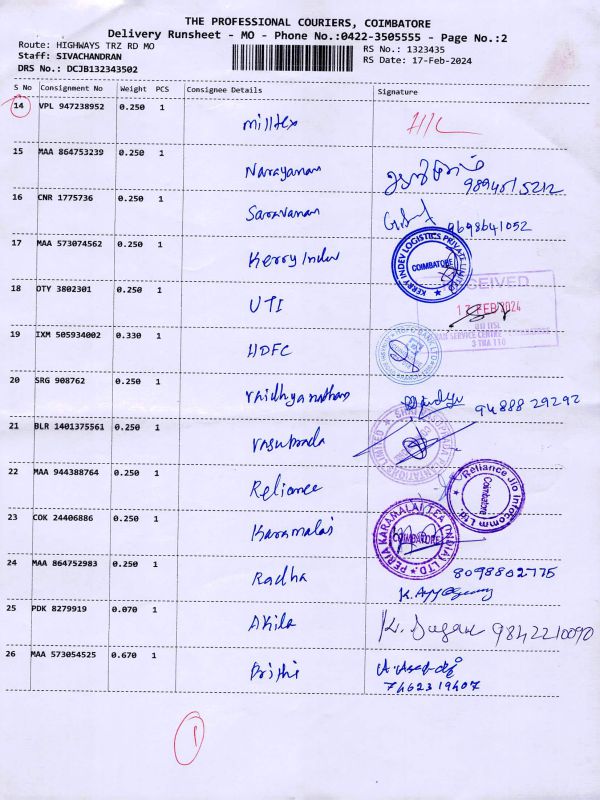 THE PROFESSIONAL COURIERS, COIMBATORE
Delivery Runsheet - MO - Phone No.:0422-3505555 - Page No.:2
Route: HIGHWAYS TRZ RD MO
RS No.: 1323435
Staff: SIVACHANDRAN
RS Date: 17-Feb-2024
DRS No.: DCJB132343502
S No Consignment No Weight PCS Consignee Details Signature
14 VPL 947238952 0.250 1 Milltex
15 MAA 864753239 0.250 1 Narayanan 9894515212
16 CNR 1775736 0.250 1 Saravanan 9698641052
17 MAA 573074562 0.250 1 Kerry Indev KERRY INDEV LOGISTICS PRIVATE LIMITED COIMBATORE
18 OTY 3802301 0.250 1 UTI RECEIVED 17 FEB 2024
19 IXM 505934002 0.330 1 HDFC
20 SRG 908762 0.250 1 Vaidhyanathan 94888 29292
21 BLR 1401375561 0.250 1
22 MAA 944388764 0.250 1 Reliance Reliance Jio Infocomm Ltd. Coimbatore
23 COK 24406886 0.250 1 Karamalai PERIA KARAMALAI TEA (INDIA) LTD. COIMBATORE
24 MAA 864752983 0.250 1 Radha 8098802775
25 PDK 8279919 0.070 1 Akila 9842210090
26 MAA 573054525 0.670 1 Prithi
7462319407
1